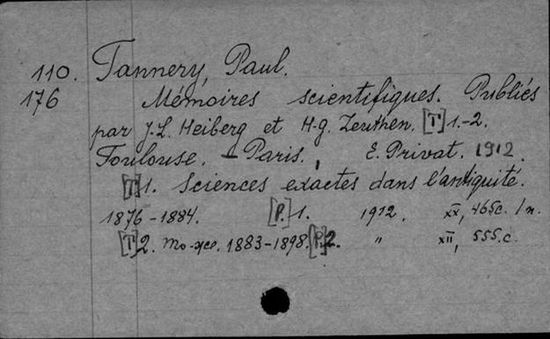 110. Tannery, Paul.
176 Mémoires scientifiques. Publiés
par J.L. Heiberg et H.G. Zeuthen. [T] 1.-2.
Toulouse. - Paris, E. Privat, 1912.
[T] 1. Sciences exactes dans l'antiquité.
1876-1884. [P.] 1. 1912. xx, 465c. 1 л.
[T] 2. То-же. 1883-1898. [P.] 2. " xii, 555.c.